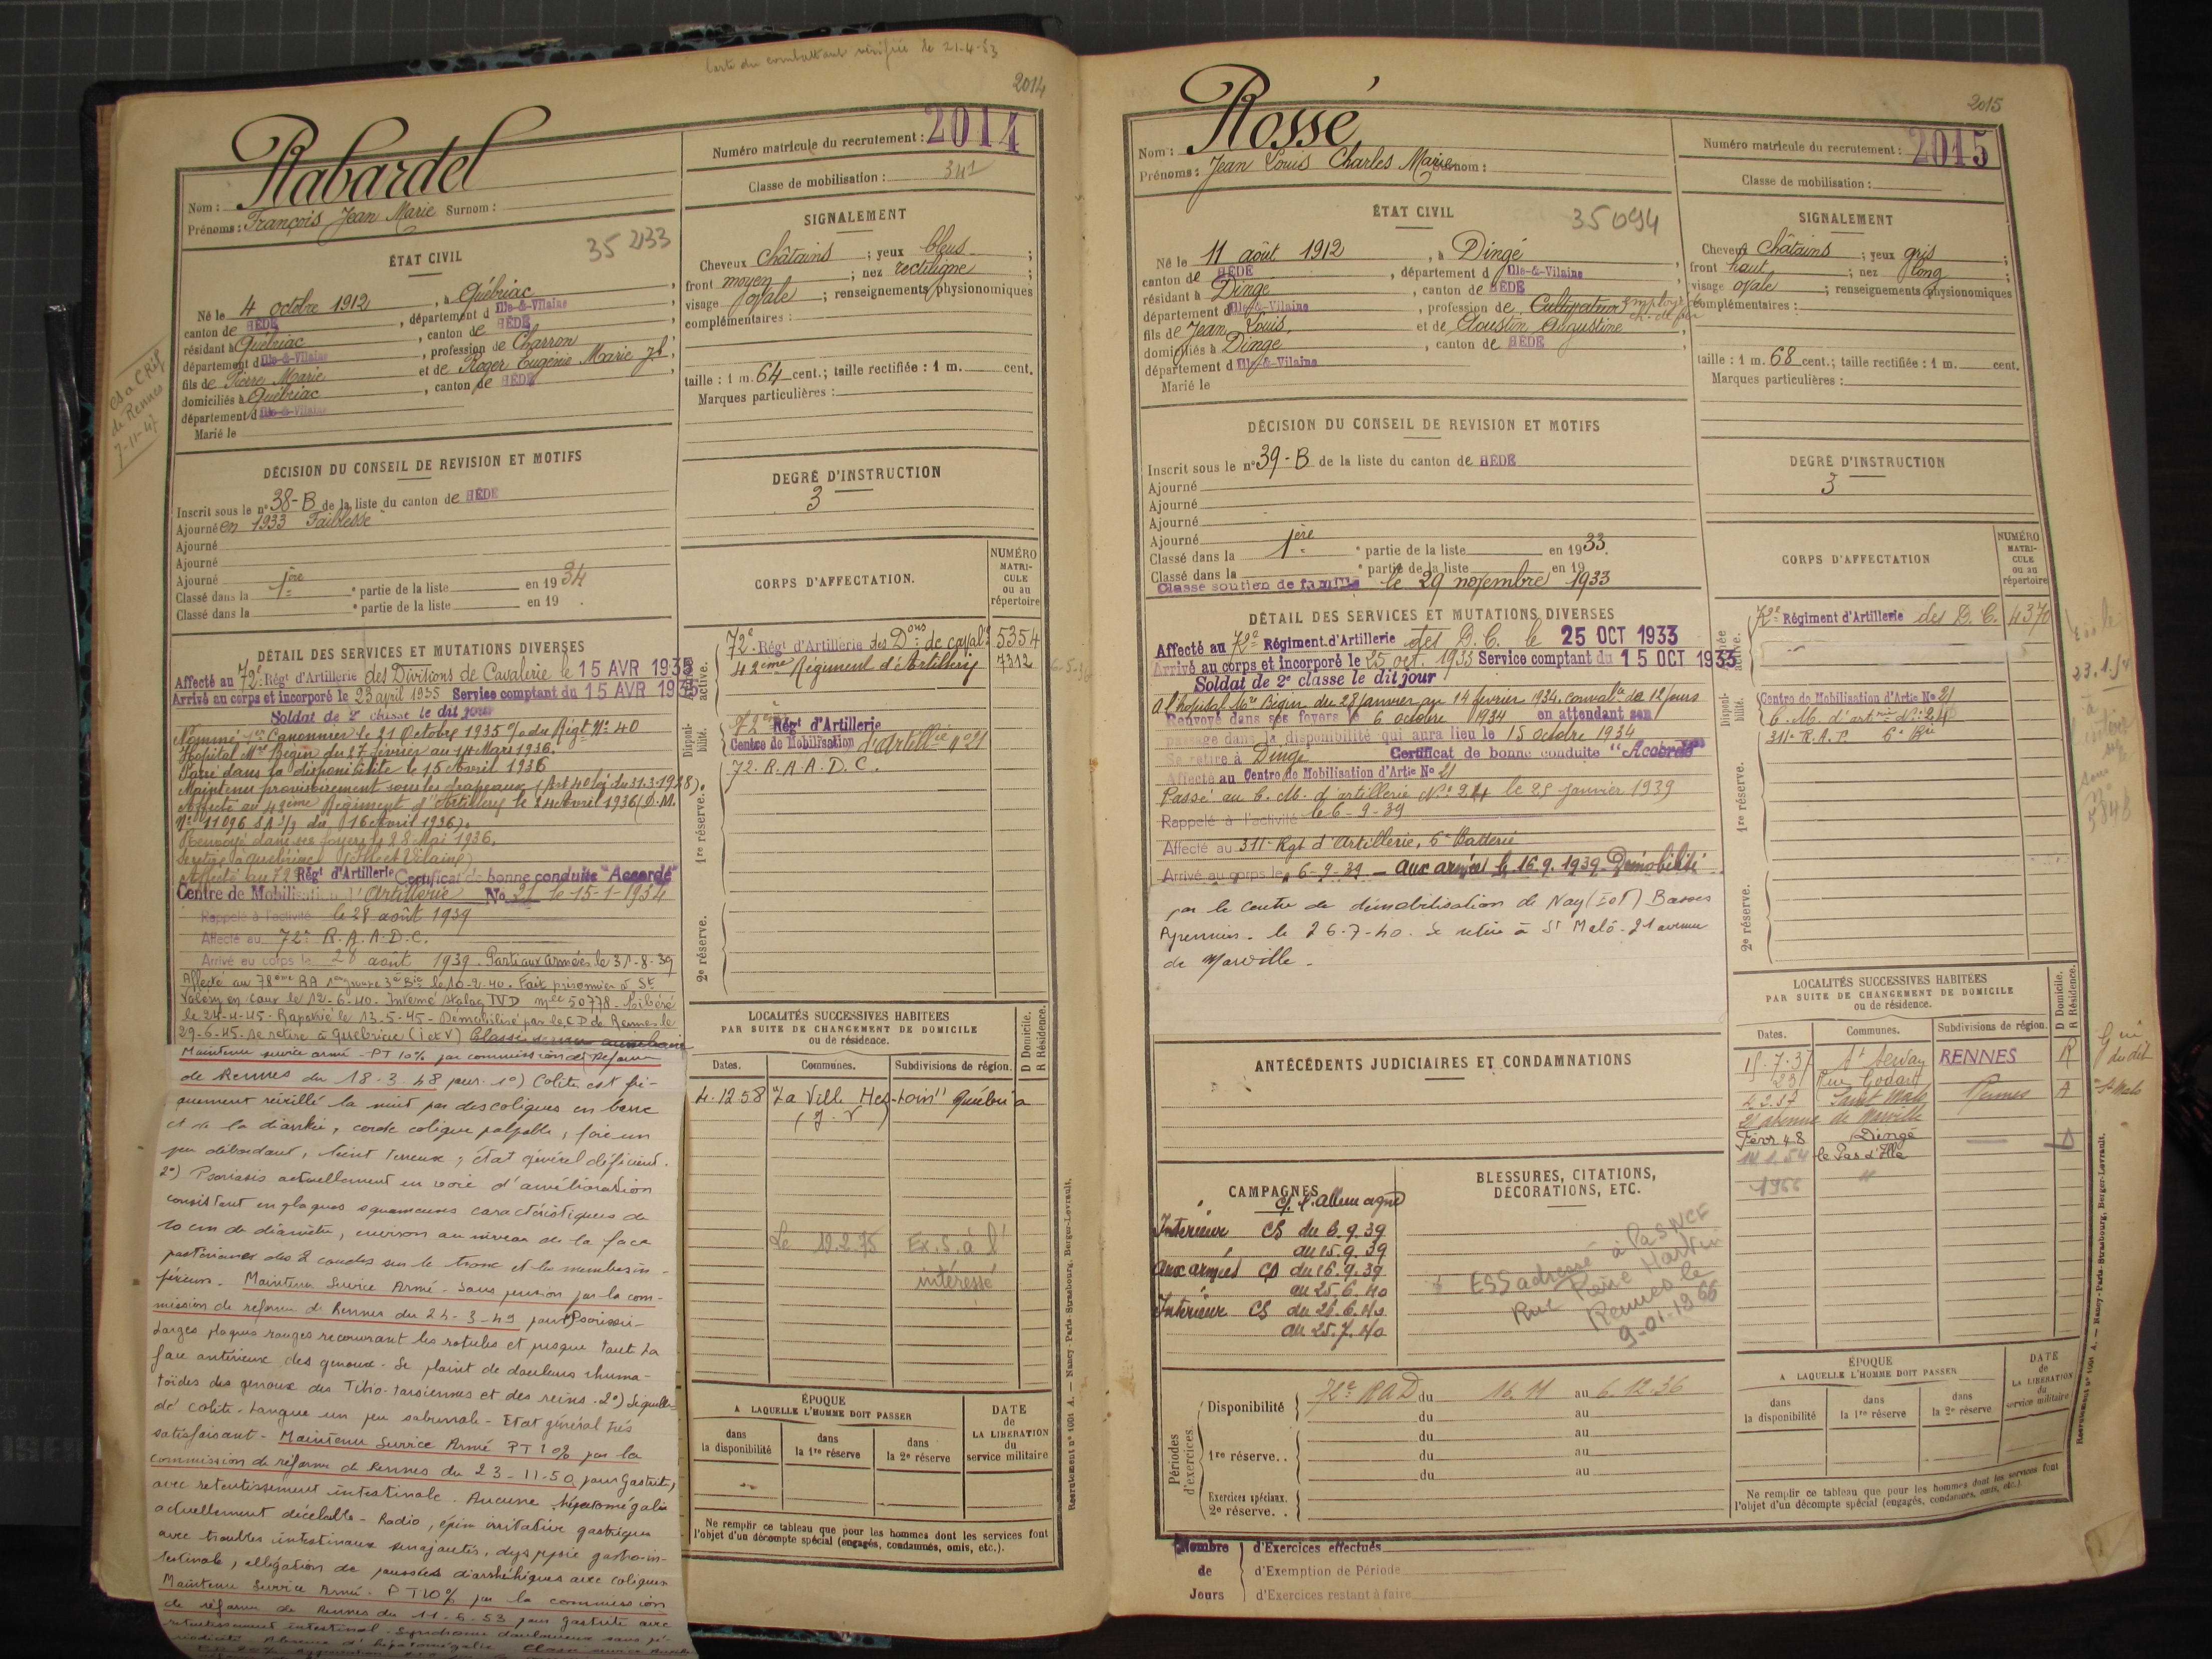 Carte du combattant vérifiée le 21-4-53
2014
Rabardel
Nom :
Prénoms : François Jean Marie Surnom :
Numéro matricule du recrutement : 2014
Classe de mobilisation :
ÉTAT CIVIL
35 233
Né le 4 octobre 1912, à Québriac,
canton de HÉDÉ, département d Ille-&-Vilaine
résidant à Québriac, canton de HÉDÉ
département d Ille-&-Vilaine, profession de Charron
fils de Pierre Marie et de Roger Eugénie Marie
domiciliés à Québriac, canton de HÉDÉ
département d Ille-&-Vilaine
Marié le
de Rennes
7-11-47
SIGNALEMENT
Cheveux châtains ; yeux bleus ;
front moyen ; nez rectiligne ;
visage ovale ; renseignements physionomiques
complémentaires :
taille : 1 m. 64 cent.; taille rectifiée : 1 m. cent.
Marques particulières :
DÉCISION DU CONSEIL DE REVISION ET MOTIFS
Inscrit sous le n° 38-B de la liste du canton de HÉDÉ
Ajourné en 1933 Faiblesse
Ajourné
Ajourné
Ajourné
Classé dans la 1ère partie de la liste en 1934
Classé dans la e partie de la liste en 19 .
DEGRÉ D'INSTRUCTION
3
DÉTAIL DES SERVICES ET MUTATIONS DIVERSES
Affecté au 72e Régt d'Artillerie des Divisions de Cavalerie le 15 AVR 1935
Arrivé au corps et incorporé le 23 avril 1935 Service comptant du 15 AVR 1935
Soldat de 2e classe le dit jour
Nommé 1er Canonnier le 21 Octobre 1935 O/ du Régt N° 40
Hôpital Mre Begin du 27 février au 14 Mars 1936.
Passé dans la disponibilité le 15 Avril 1936
Maintenu provisoirement sous les drapeaux (Art 40 loi du 31.3.1928).
Affecté au 42ème Régiment d'Artillerie le 24 Avril 1936 (D.M.
N° 11096 du 16 Avril 1936).
Renvoyé dans ses foyers le 28 Mai 1936.
Se retire à Québriac (Ille et Vilaine)
Affecté au 72 Régt d'Artillerie Certificat de bonne conduite "Accordé"
Centre de Mobilisation d'Artillerie No 21 le 15-1-1934
Rappelé à l'activité le 28 août 1939
Affecté au 72e R.A.A.D.C.
Arrivé au corps le 28 août 1939. Parti aux Armées le 31-8-39
Affecté au 78ème RA 1er groupe 3e Bie le 16-2-40. Fait prisonnier à St
Valéry en Caux le 12-6-40. Interné stalag IV D mle 50778 - Libéré
le 24-4-45 - Rapatrié le 13-5-45 - Démobilisé par le C D de Rennes le
29-6-45. Se retire à Québriac (I et V) Classé service auxiliaire
Maintenu service armé - PT 10% par commission de Réforme
de Rennes du 18-3-48 pour 1°) Colite est fré-
quemment réveillé la nuit par des coliques en barre
et de la diarrhée, corde colique palpable, foie un
peu débordant, teint terreux ; état général déficient.
2°) Psoriasis actuellement en voie d'amélioration
consistant en plaques squameuses caractéristiques de
10 cm de diamètre, environ au niveau de la face
postérieure des 2 coudes sur le tronc et les membres in-
férieurs. Maintenu Service Armé - Sans pension par la com-
mission de réforme de Rennes du 24-3-49 pour Psoriasis
Larges plaques rouges recouvrant les rotules et presque toute la
face antérieure des genoux - Se plaint de douleurs rhuma-
toïdes des genoux des Tibio-tarsiennes et des reins. 2°) Séquelles
de colite - Langue un peu saburrale - Etat général très
satisfaisant - Maintenu Service Armé PT 10% par la
commission de réforme de Rennes du 23-11-50 pour Gastrite,
avec retentissement intestinale. Aucune hépatomégalie
actuellement décelable - Radio, épine irritative gastrique
avec troubles intestinaux surajoutés, dyspepsie gastro-in-
testinale, allégation de poussées diarrhéiques avec coliques
Maintenu Service Armé - P T 10% par la commission
de réforme de Rennes du 11-6-53 pour gastrite avec
retentissement intestinal. Syndrome douloureux sans pé-
CORPS D'AFFECTATION.
NUMÉRO MATRICULE ou au répertoire
Armée active.
72e Régt d'Artillerie des Dons de caval. 5354
42ème Régiment d'Artillerie 7312
Disponibilité.
72ème Régt d'Artillerie
Centre de Mobilisation d'Artillerie n° 21
1re réserve.
72. R.A.A.D.C.
2e réserve.
LOCALITÉS SUCCESSIVES HABITÉES
PAR SUITE DE CHANGEMENT DE DOMICILE
ou de résidence.
D Domicile.
R Résidence.
Dates. Communes. Subdivisions de région.
4.12 58 "La Ville Hes-toin" Québriac
Le 19.2.75 Ex.S. à l'
intéressé
ÉPOQUE
A LAQUELLE L'HOMME DOIT PASSER
dans la disponibilité
dans la 1re réserve
dans la 2e réserve
DATE de LA LIBÉRATION du service militaire
Ne remplir ce tableau que pour les hommes dont les services font
l'objet d'un décompte spécial (engagés, condamnés, omis, etc.).
Recrutement n° 1001 A. — Nancy-Paris-Strasbourg, Berger-Levrault.
2015
Rossé
Nom :
Prénoms : Jean Louis Charles Marie Surnom :
Numéro matricule du recrutement : 2015
Classe de mobilisation :
ÉTAT CIVIL
35094
Né le 11 août 1912, à Dingé,
canton de HÉDÉ, département d Ille-&-Vilaine
résidant à Dingé, canton de HÉDÉ
département d Ille-&-Vilaine, profession de Cultivateur employé ch. de fer
fils de Jean Louis, et de Aoustin Augustine
domiciliés à Dingé, canton de HÉDÉ
département d Ille-&-Vilaine
Marié le
SIGNALEMENT
Cheveux châtains ; yeux gris ;
front haut ; nez long ;
visage ovale ; renseignements physionomiques
complémentaires :
taille : 1 m. 68 cent.; taille rectifiée : 1 m. cent.
Marques particulières :
DÉCISION DU CONSEIL DE REVISION ET MOTIFS
Inscrit sous le n° 39-B de la liste du canton de HÉDÉ
Ajourné
Ajourné
Ajourné
Ajourné
Classé dans la 1ère partie de la liste en 1933.
Classé dans la e partie de la liste en 19
Classé soutien de famille le 29 novembre 1933
DEGRÉ D'INSTRUCTION
3
DÉTAIL DES SERVICES ET MUTATIONS DIVERSES
Affecté au 72e Régiment d'Artillerie des D.C. le 25 OCT 1933
Arrivé au corps et incorporé le 25 oct. 1933 Service comptant du 15 OCT 1933
Soldat de 2e classe le dit jour
A l'hôpital Mre Bégin du 28 janvier au 14 février 1934. conval. de 12 jours
Renvoyé dans ses foyers le 6 octobre 1934 en attendant son
passage dans la disponibilité qui aura lieu le 15 octobre 1934
Se retire à Dingé Certificat de bonne conduite "Accordé"
Affecté au Centre de Mobilisation d'Artie No 21
Passé au C.M. d'artillerie N° 24 le 25 janvier 1939
Rappelé à l'activité le 6-9-39
Affecté au 311e Rgt d'Artillerie, 6e Batterie
Arrivé au corps le 6-9-39 - aux armées le 16.9.1939. Démobilisé
par le centre de démobilisation de Nay Basses
Pyrénées - le 26-7-40. Se retire à St Malo - 21 avenue
de Marville -
CORPS D'AFFECTATION
NUMÉRO MATRICULE ou au répertoire
Armée active.
72e Régiment d'Artillerie des D.C. 4370
Disponibilité.
Centre de Mobilisation d'Artie No 21
C.M. d'artrie N° 24
311e R.A.P. 6e Bie
1re réserve.
2e réserve.
ANTÉCÉDENTS JUDICIAIRES ET CONDAMNATIONS
LOCALITÉS SUCCESSIVES HABITÉES
PAR SUITE DE CHANGEMENT DE DOMICILE
ou de résidence.
D Domicile.
R Résidence.
Dates. Communes. Subdivisions de région.
15.7.37 St Servan RENNES R
23 Rue Godard
4.2.37 Saint Malo Rennes
21 avenue de Marville
Févr 48 Dingé D
14.1.54 le Pas d'Ille
1966 "
CAMPAGNES
c/ l'allemagne
Intérieur CS du 6.9.39
au 15.9.39
aux armées CD du 16.9.39
au 25.6.40
Intérieur CS du 26.6.40
au 25.7.40
BLESSURES, CITATIONS,
DÉCORATIONS, ETC.
ESS adressé à la SNCF
Rue Pierre Martin
Rennes le
9-01-1966
Périodes d'exercices.
Disponibilité 72e RAD du 16.11 au 6.12.36
du au
du au
1re réserve. . du au
du au
Exercices spéciaux.
2e réserve. .
ÉPOQUE
A LAQUELLE L'HOMME DOIT PASSER
dans la disponibilité
dans la 1re réserve
dans la 2e réserve
DATE de LA LIBÉRATION du service militaire
Ne remplir ce tableau que pour les hommes dont les services font
l'objet d'un décompte spécial (engagés, condamnés, omis, etc.).
Nombre de Jours
d'Exercices effectués
d'Exemption de Période
d'Exercices restant à faire
Recrutement n° 1001 A. — Nancy-Paris-Strasbourg, Berger-Levrault.